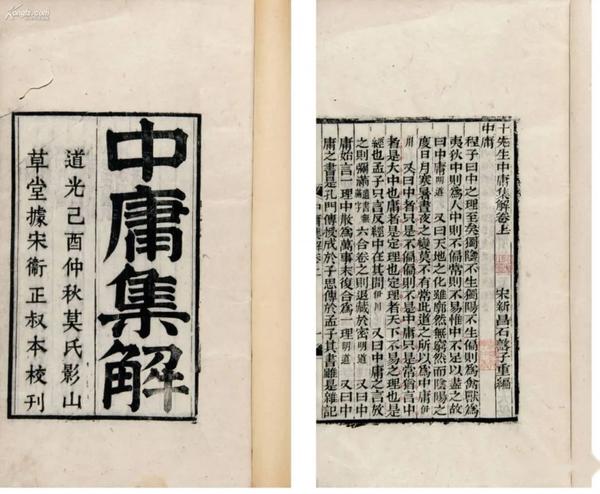 中庸集解
道光己酉仲秋莫氏影山
草堂據宋衛正叔本校刊
十先生中庸集解卷上 宋新昌石子重編
中庸
程子曰中之理至矣獨陰不生獨陽不生偏則爲禽獸爲
夷狄中則爲人中則不偏常則不易惟中不足以盡之故
曰中庸明道 又曰天地之化雖廓然無窮然而陰陽之
度日月寒暑晝夜之變莫不有常此道之所以爲中庸伊
川 又曰中者只是不偏偏則不是中庸只是常猶言中
者是大中也庸者是定理也定理者天下不易之理也是
經也孟子只言反經中在其間伊川 又曰中庸之言放
之則彌滿六合卷之則退藏於密明道 又曰中
庸始言一理中散爲萬事末復合爲一理明道 又曰中
庸之書是孔門傳授成於子思傳於孟子其書雖是雜記